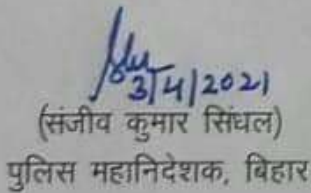 3/4/2021
(संजीव कुमार सिंघल)
पुलिस महानिदेशक, बिहार